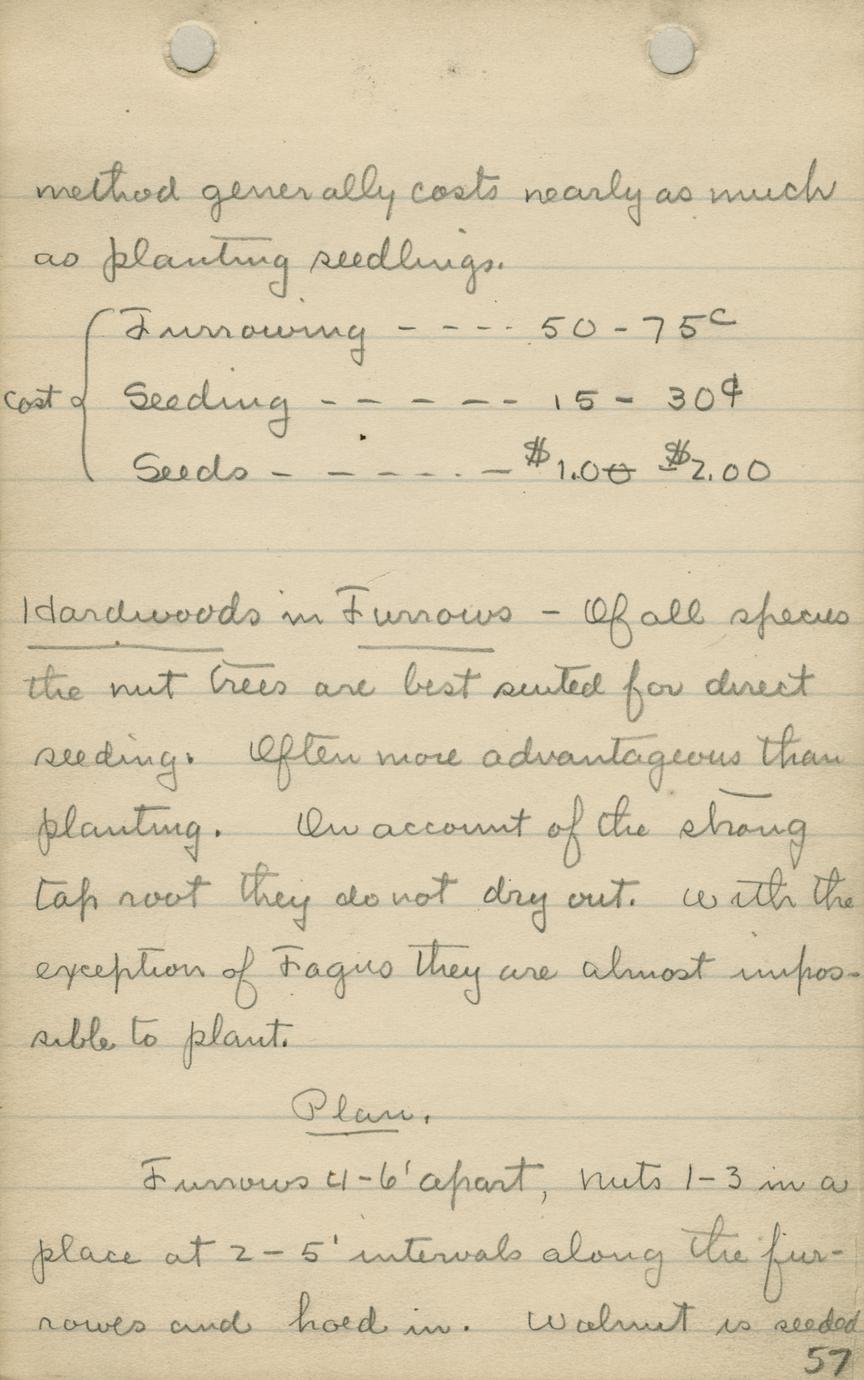 method generally costs nearly as much
as planting seedlings.
Cost { Furrowing - - - - 50 - 75c
Seeding - - - - - - 15 - 30¢
Seeds - - - - . - - $1.00 - $2.00
Hardwoods in Furrows - Of all species
the nut trees are best suited for direct
seeding. Often more advantageous than
planting. On account of the strong
tap root they do not dry out. With the
exception of Fagus they are almost impos-
sible to plant.
Plan.
Furrows 4-6' apart, nuts 1-3 in a
place at 2 - 5' intervals along the fur-
rowes and hoed in. Walnut is seeded
57